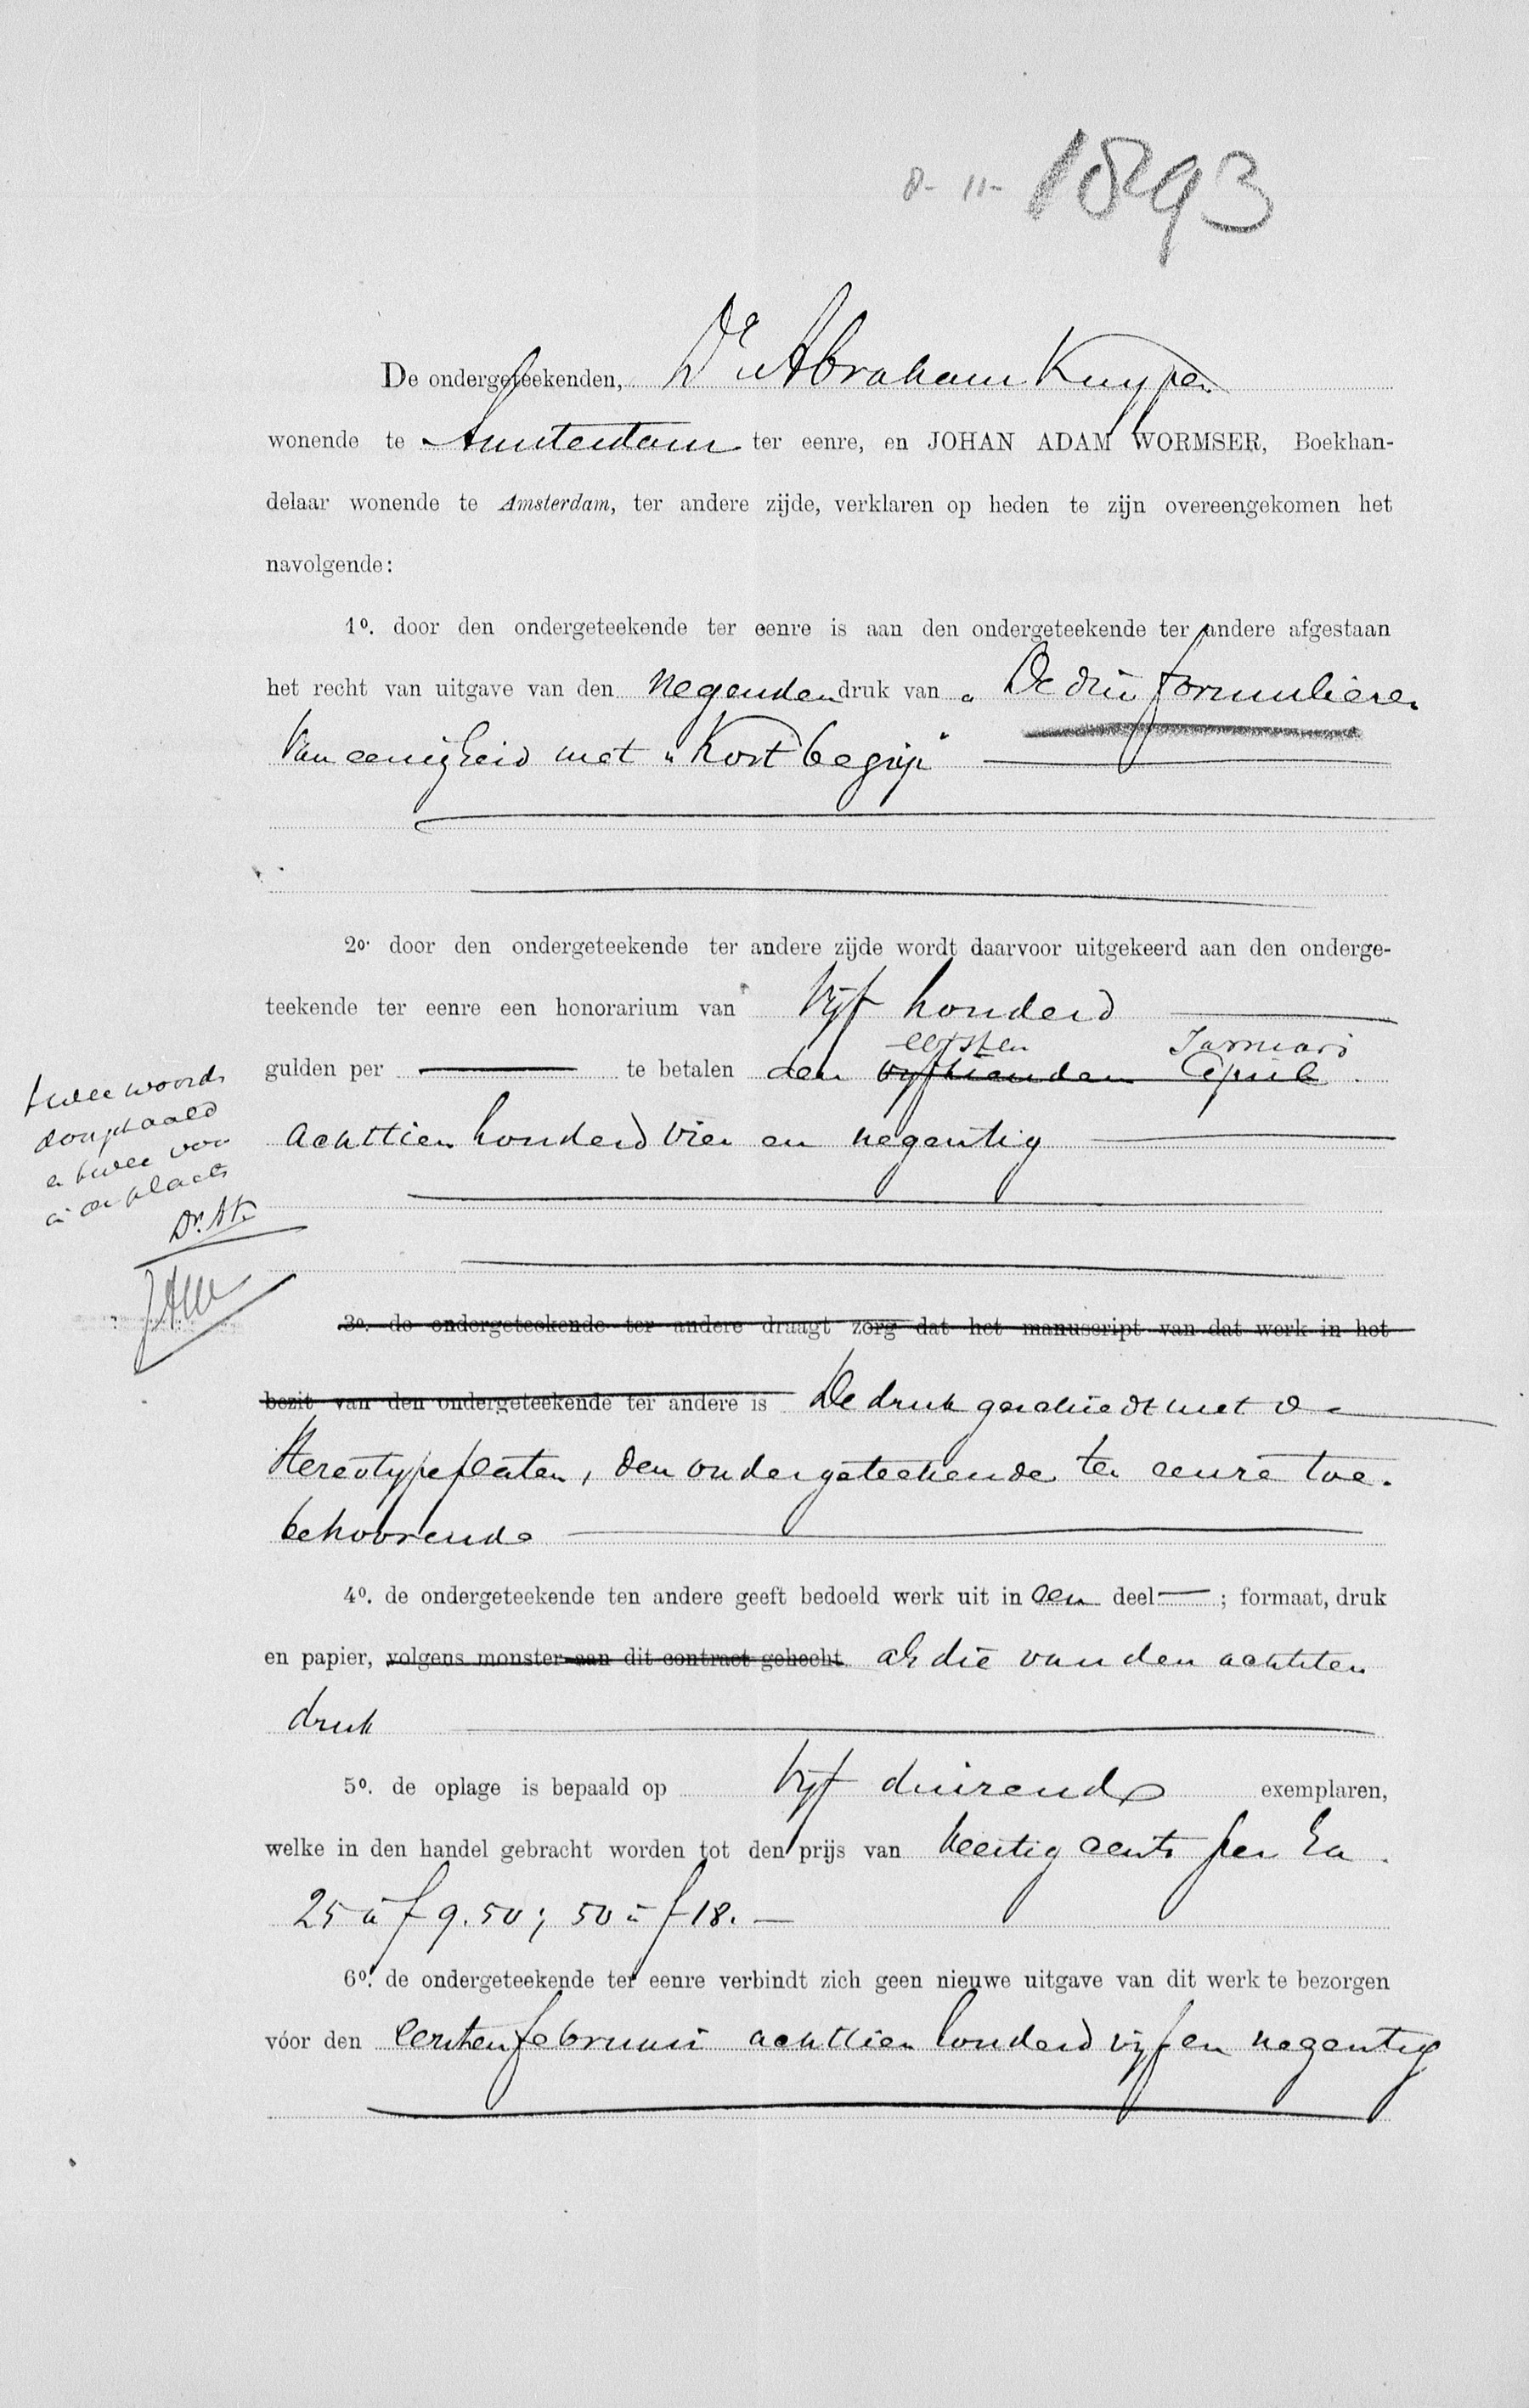 8-11-1893
De ondergeteekenden, Dr Abraham Kuyper
wonende te Amsterdam ter eenre, en JOHAN ADAM WORMSER, Boekhan-
delaar wonende te Amsterdam, ter andere zijde, verklaren op heden te zijn overeengekomen het
navolgende:
1o. door den ondergeteekende ter eenre is aan den ondergeteekende ter andere afgestaan
het recht van uitgave van den negenden druk van „De drie formulieren
van eenigheid met „Kort begrip"
2o. door den ondergeteekende ter andere zijde wordt daarvoor uitgekeerd aan den onderge-
teekende ter eenre een honorarium van vijf honderd
eersten Januari
gulden per te betalen den vijftienden April
achttien honderd vier en negentig
twee woorden
doorgehaald
en twee voor
in de plaats
Dr. AK
JAW
3o. de ondergeteekende ter andere draagt zorg dat het manuscript van dat werk in het
bezit van den ondergeteekende ter andere is De druk geschiedt met de
Stereotypeplaten, den ondergeteekende ter eenre toe-
behoorende
4o. de ondergeteekende ten andere geeft bedoeld werk uit in een deel ; formaat, druk
en papier, volgens monster aan dit contract gehecht als die van den achtsten
druk
5o. de oplage is bepaald op vijf duizend exemplaren,
welke in den handel gebracht worden tot den prijs van veertig cents per Ex.
25 à f 9.50; 50 à f 18.—
6o. de ondergeteekende ter eenre verbindt zich geen nieuwe uitgave van dit werk te bezorgen
vóor den eersten februari achttien honderd vijf en negentig